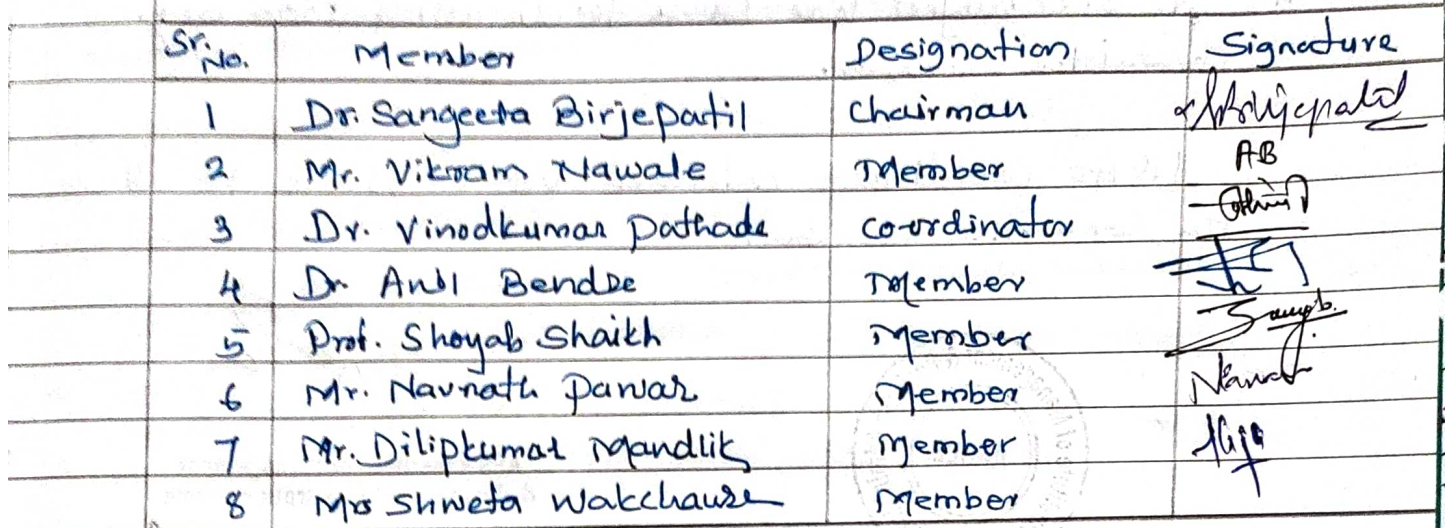 Sr. No. Member Designation Signature
1 Dr. Sangeeta Birjepatil Chairman
2 Mr. Vikram Nawale Member AB
3 Dr. Vinodkumar Pathade Co-ordinator
4 Dr. Anil Bendre Member
5 Prof. Shoyab Shaikh Member
6 Mr. Navnath Pawar Member
7 Mr. Dilipkumar Mandlik Member
8 Mrs Shweta Wakchaure Member